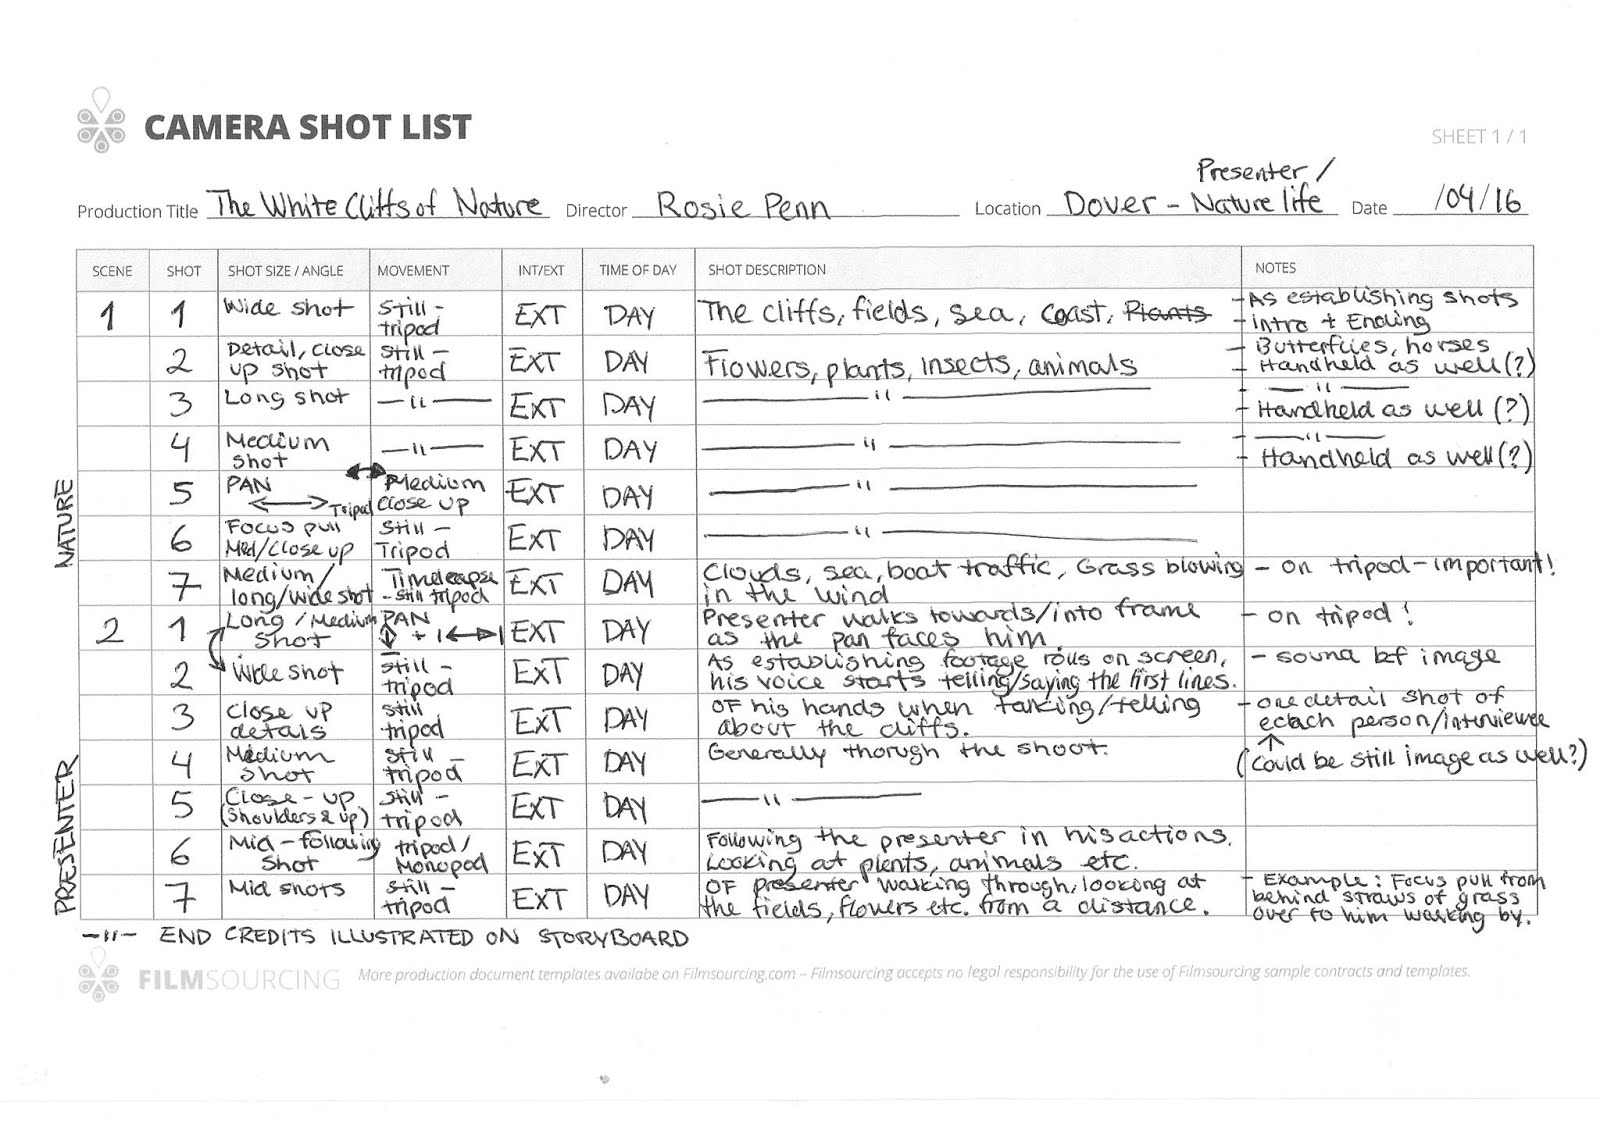 CAMERA SHOT LIST
SHEET 1 / 1
Presenter /
Production Title The White Cliffs of Nature Director Rosie Penn Location Dover - Nature life Date /04/16
SCENE SHOT SHOT SIZE / ANGLE MOVEMENT INT/EXT TIME OF DAY SHOT DESCRIPTION NOTES
NATURE
1 1 Wide shot Still - tripod EXT DAY The cliffs, fields, sea, coast, Plants - As establishing shots - intro + Ending
2 Detail, close up shot Still - tripod EXT DAY Flowers, plants, insects, animals - Butterflies, horses - Handheld as well (?)
3 Long shot —"— EXT DAY —"— - —"— - Handheld as well (?)
4 Medium shot —"— EXT DAY —"— - —"— - Handheld as well (?)
5 PAN ↔ Tripod ↔ Medium close up EXT DAY —"—
6 Focus pull Med/close up Still - Tripod EXT DAY —"—
7 Medium/ long/wide shot Timelapse - still tripod EXT DAY Clouds, sea, boat traffic, Grass blowing in the wind - on tripod - important!
PRESENTER
2 1 Long / Medium shot PAN ↕ + ↔ EXT DAY Presenter walks towards/into frame as the pan faces him. - on tripod !
2 Wide shot still - tripod EXT DAY As establishing footage rolls on screen, his voice starts telling/saying the first lines. - sound bf image
3 Close up details still tripod EXT DAY OF his hands when talking/telling about the cliffs. - one detail shot of each person/interviewee
4 Medium shot still - tripod EXT DAY Generally thorugh the shoot. (↑ Could be still image as well?)
5 Close - up (Shoulders & up) still - tripod EXT DAY —"—
6 Mid - following shot tripod / Monopod EXT DAY Following the presenter in his actions. Looking at plants, animals etc.
7 Mid shots still - tripod EXT DAY OF presenter walking through, looking at the fields, flowers etc. from a distance. - Example : Focus pull from behind straws of grass over to him walking by.
—"— END CREDITS ILLUSTRATED ON STORYBOARD
FILMSOURCING More production document templates availabe on Filmsourcing.com – Filmsourcing accepts no legal responsibility for the use of Filmsourcing sample contracts and templates.